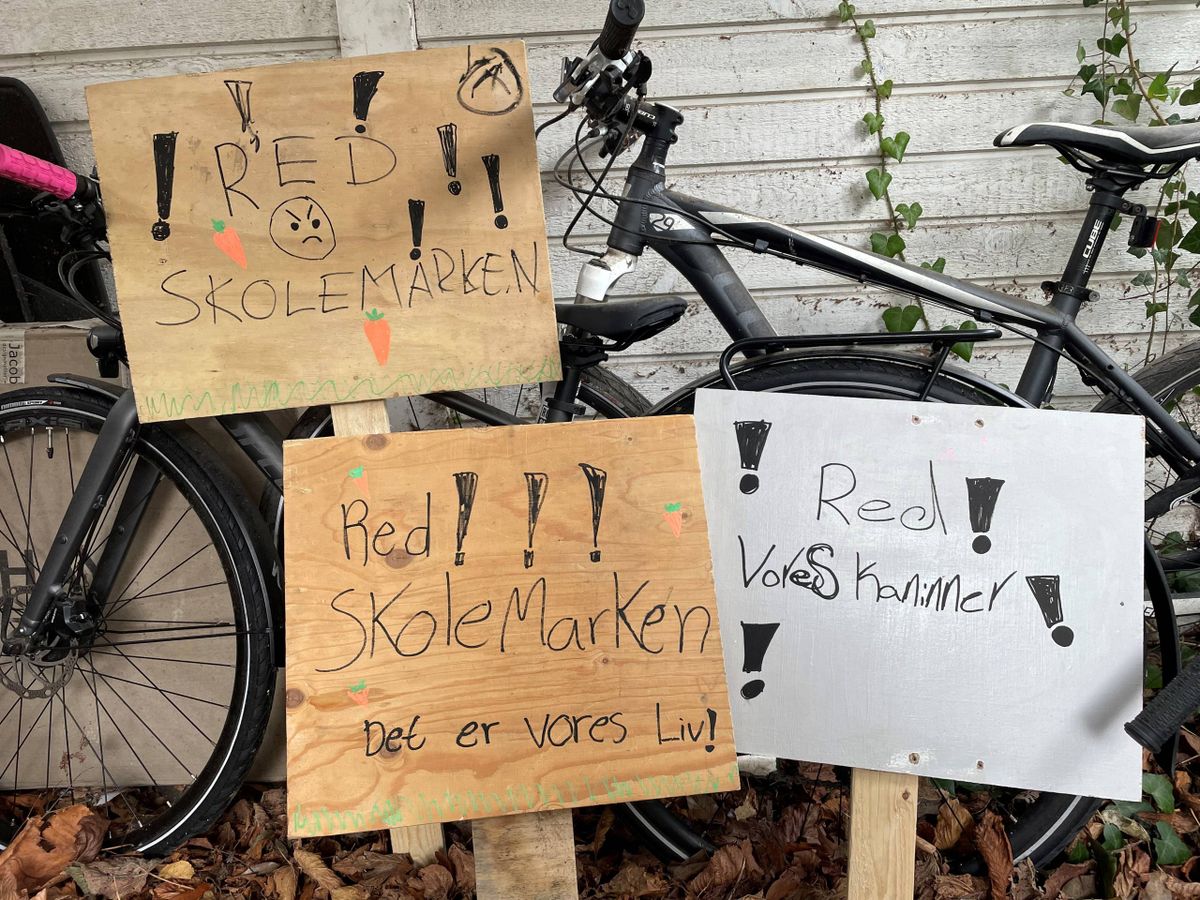 RED
SKOLEMARKEN
Red!!!
SkoleMarken
Det er vores Liv!
Red!
Vores Kaninner!
CUBE
29
Jacob